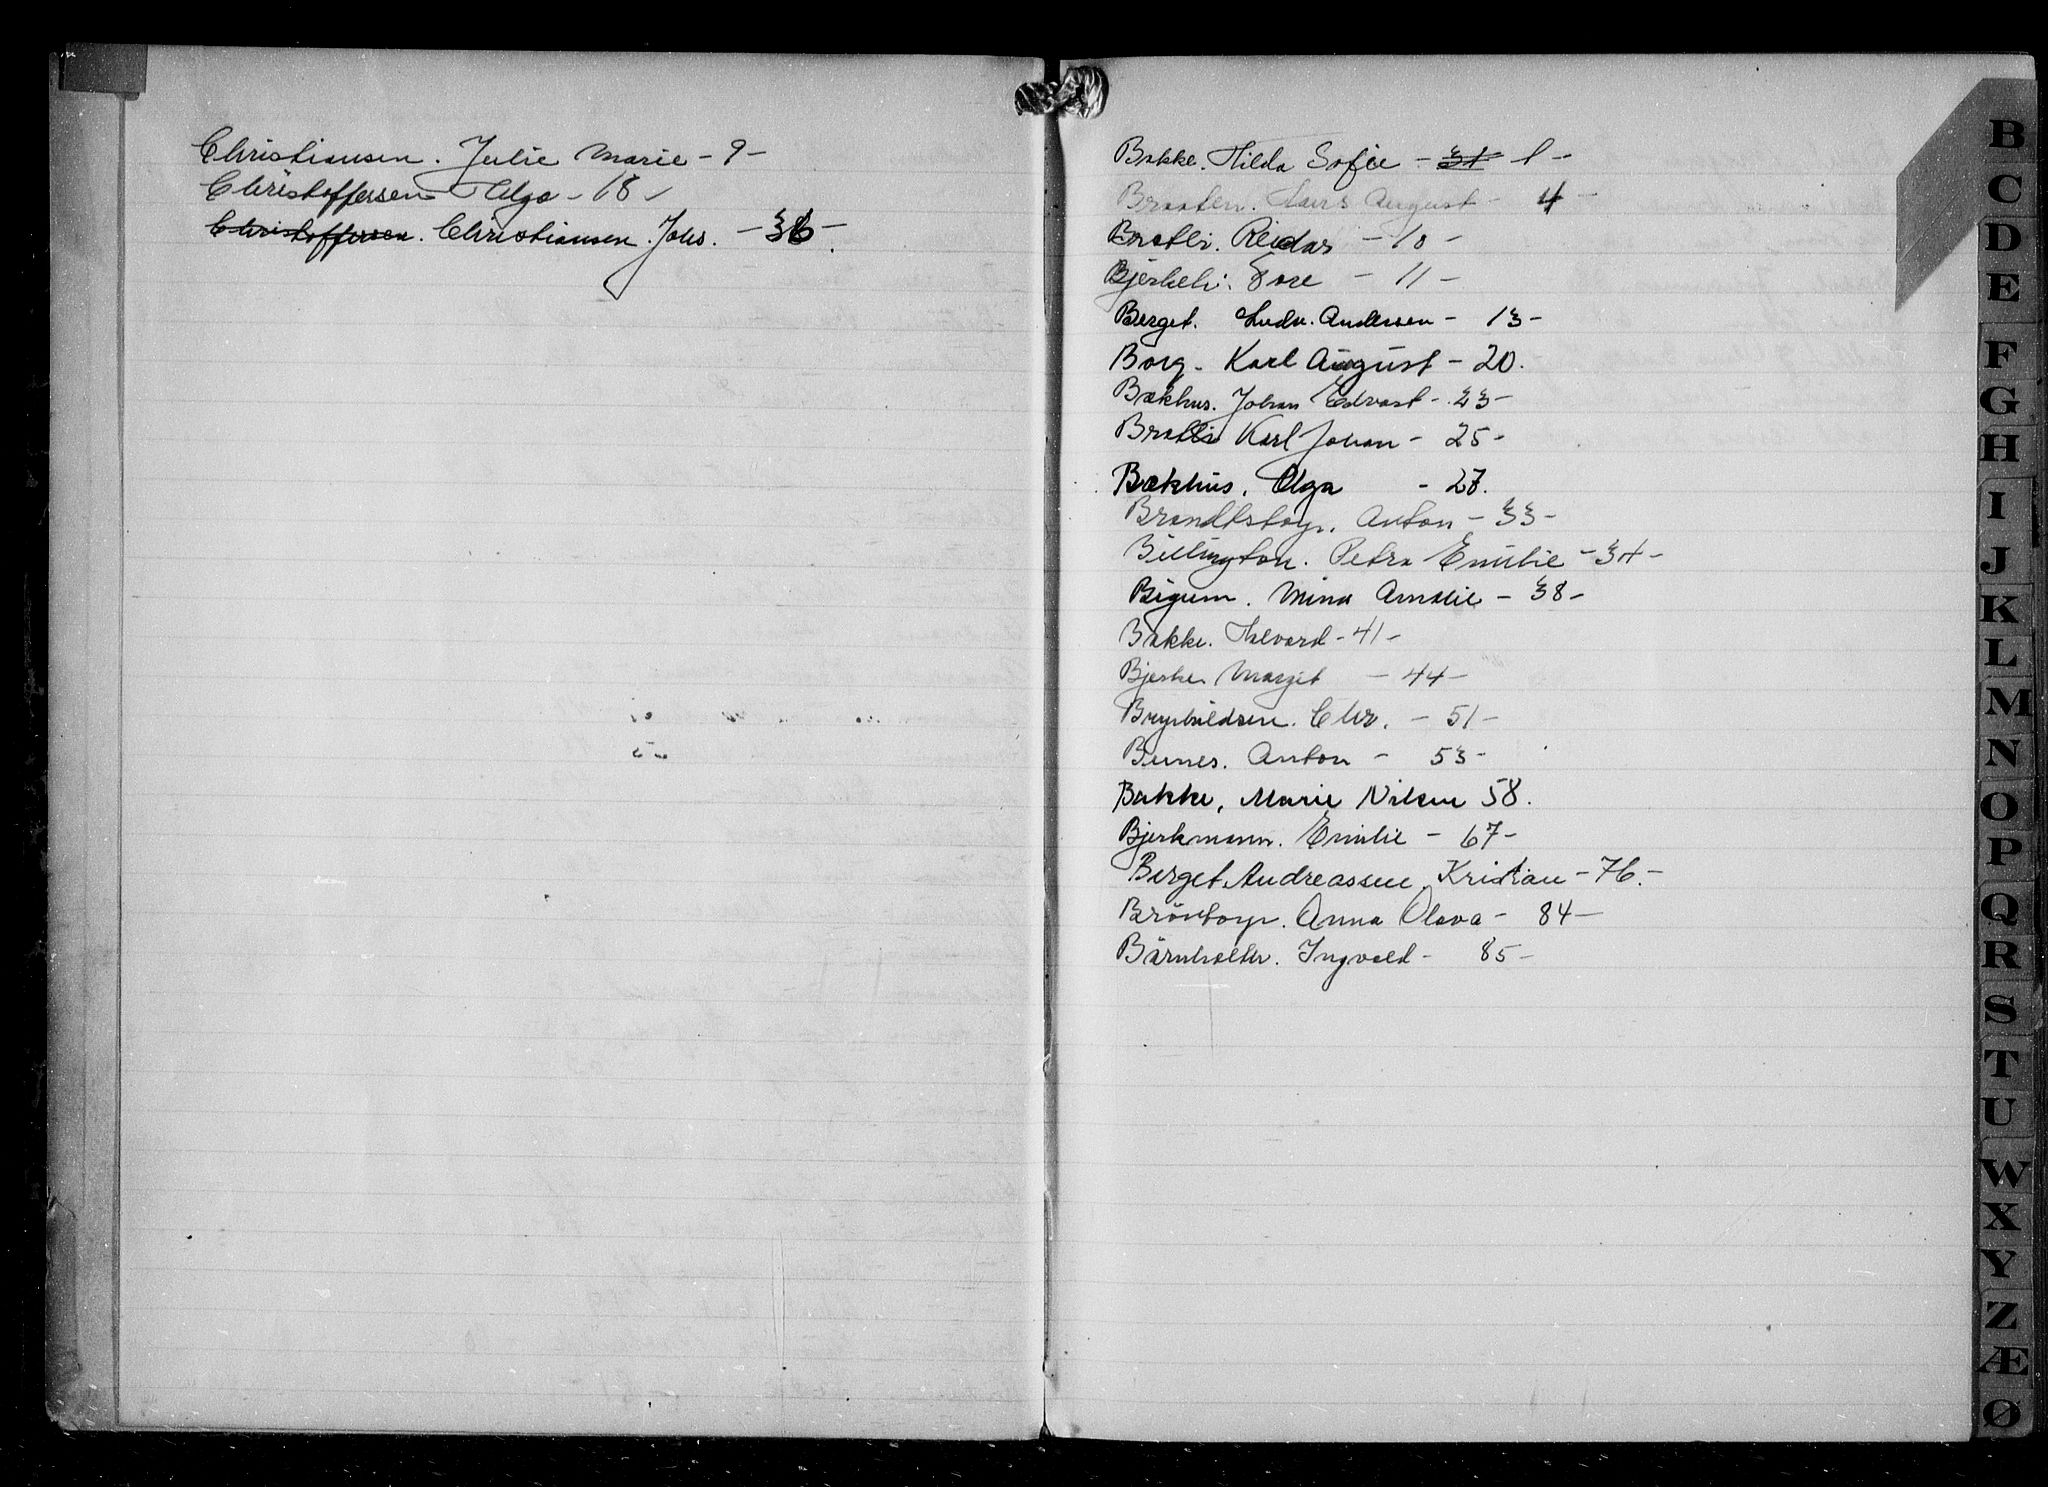 Christiansen. Julie Marie - 9 -
Christoffersen Helga - 18 -
Christoffersen. Christiansen. Johs. - 36 -
Bakke. Hilda Sofie - 31 1 -
Braaten. Hans August - 4 -
Bratli. Reidar - 10 -
Bjerkeli. Tore - 11 -
Berget. Ludv. Andersen - 13 -
Borg. Karl August - 20.
Bækhus. Johan Edvart - 23 -
Bratli Karl Johan - 25 -
Bækhus, Olga - 27.
Brandtstoyr. Anton - 33 -
Billington. Petra Emilie - 34 -
Bigum. Mina Amalie - 38 -
Bakke. Halvard - 41 -
Bjerke Marget - 44 -
Chr. - 51 -
Bunes. Anton - 53 -
Bakke, Marie Nilsen 58.
Bjerkmann. Emilie - 67 -
Berget Andreassen, Kristian - 76. -
Anna Olava - 84 -
Bärnholdtr. Ingvald - 85 -
B
C
D
E
F
G
H
I
J
K
L
M
N
O
P
Q
R
S
T
U
W
X
Y
Z
Æ
Ø